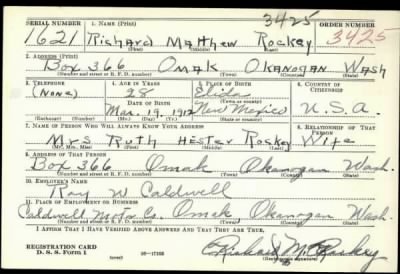 3425
SERIAL NUMBER 1. NAME (Print) ORDER NUMBER
1621 Richard Matthew Rockey 3425
(First) (Middle) (Last)
2. ADDRESS (Print)
Box 366 Omak Okanogan Wash
(Number and street or R. F. D. number) (Town) (County) (State)
3. TELEPHONE 4. AGE IN YEARS 5. PLACE OF BIRTH 6. COUNTRY OF CITIZENSHIP
(None) 28 Elida
DATE OF BIRTH (Town or county)
Mar. 19, 1912 New Mexico U.S.A.
(Exchange) (Number) (Mo.) (Day) (Yr.) (State or country)
7. NAME OF PERSON WHO WILL ALWAYS KNOW YOUR ADDRESS 8. RELATIONSHIP OF THAT PERSON
Mrs Ruth Hester Rockey Wife
(Mr., Mrs., Miss) (First) (Middle) (Last)
9. ADDRESS OF THAT PERSON
Box 366 Omak Okanogan Wash.
(Number and street or R. F. D. number) (Town) (County) (State)
10. EMPLOYER'S NAME
Ray W Caldwell
11. PLACE OF EMPLOYMENT OR BUSINESS
Caldwell Motor Co. Omak, Okanogan Wash.
(Number and street or R. F. D. number) (Town) (County) (State)
I AFFIRM THAT I HAVE VERIFIED ABOVE ANSWERS AND THAT THEY ARE TRUE.
REGISTRATION CARD
D. S. S. Form 1 16—17105 Richard M. Rockey
(Registrant's signature)